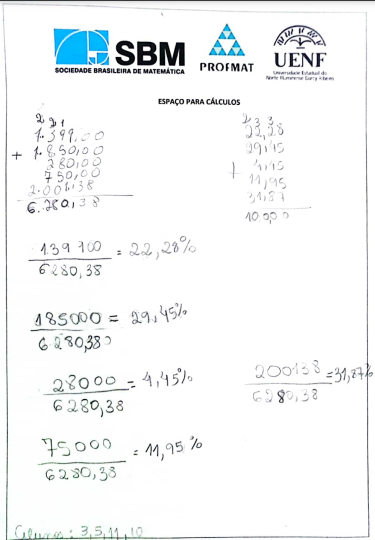 SBM
SOCIEDADE BRASILEIRA DE MATEMÁTICA
PROFMAT
UENF
Universidade Estadual do
Norte Fluminense Darcy Ribeiro
ESPAÇO PARA CÁLCULOS
2 2 1
1.399,00
+ 1.850,00
280,00
750,00
2.001,38
6.280,38
2 3 3
22,28
29,45
+ 4,45
11,95
31,87
100,00
139900 / 6280,38 = 22,28%
185000 / 6280,38 = 29,45%
28000 / 6280,38 = 4,45%
200138 / 6280,38 = 31,87%
75000 / 6280,38 = 11,95%
: 3,5,11,10